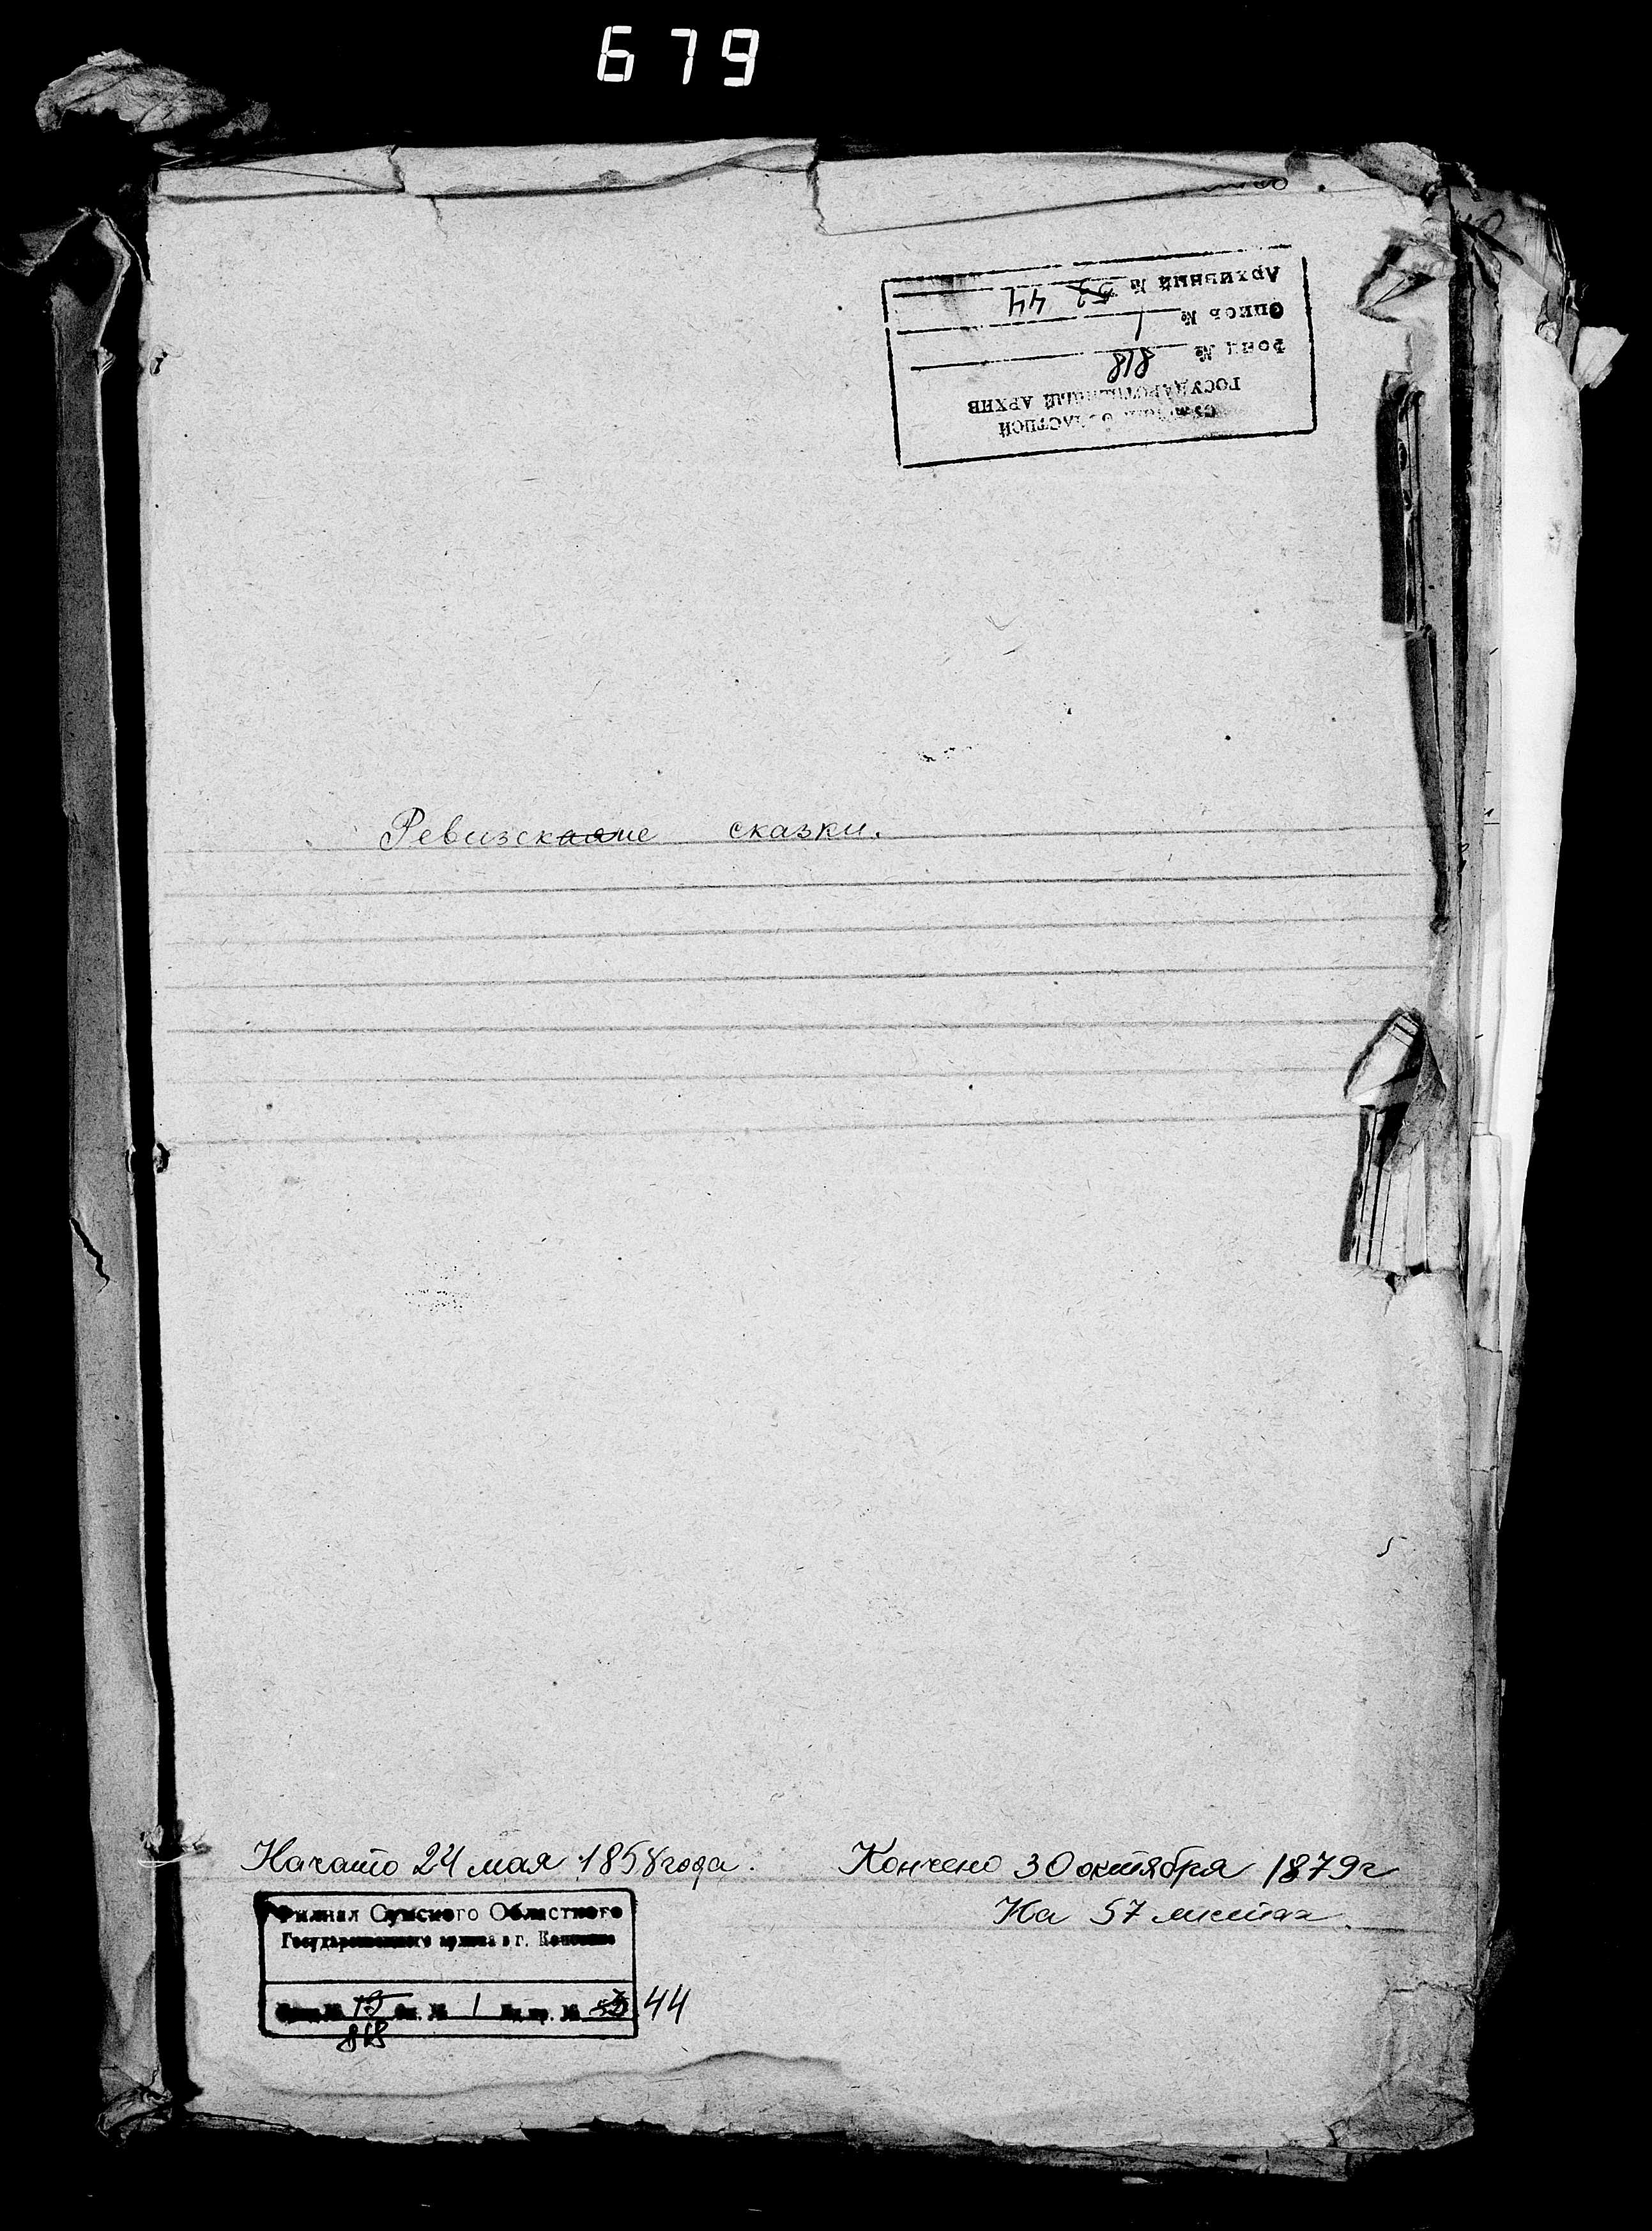 679
СУМСКОЙ ОБЛАСТНОЙ
ГОСУДАРСТВЕННЫЙ АРХИВ
Фонд № 818
Опись № 1
Архивный № 53 44
Ревизские сказки.
Начато 24 мая 1858 года.
Кончено 30 октября 1879 г
На 57 листах.
Филиал Сумского Областного
Государственного архива в г. Конотопе
Фонд № 15 Оп. № 1 Ед. хр. № 53 44
818